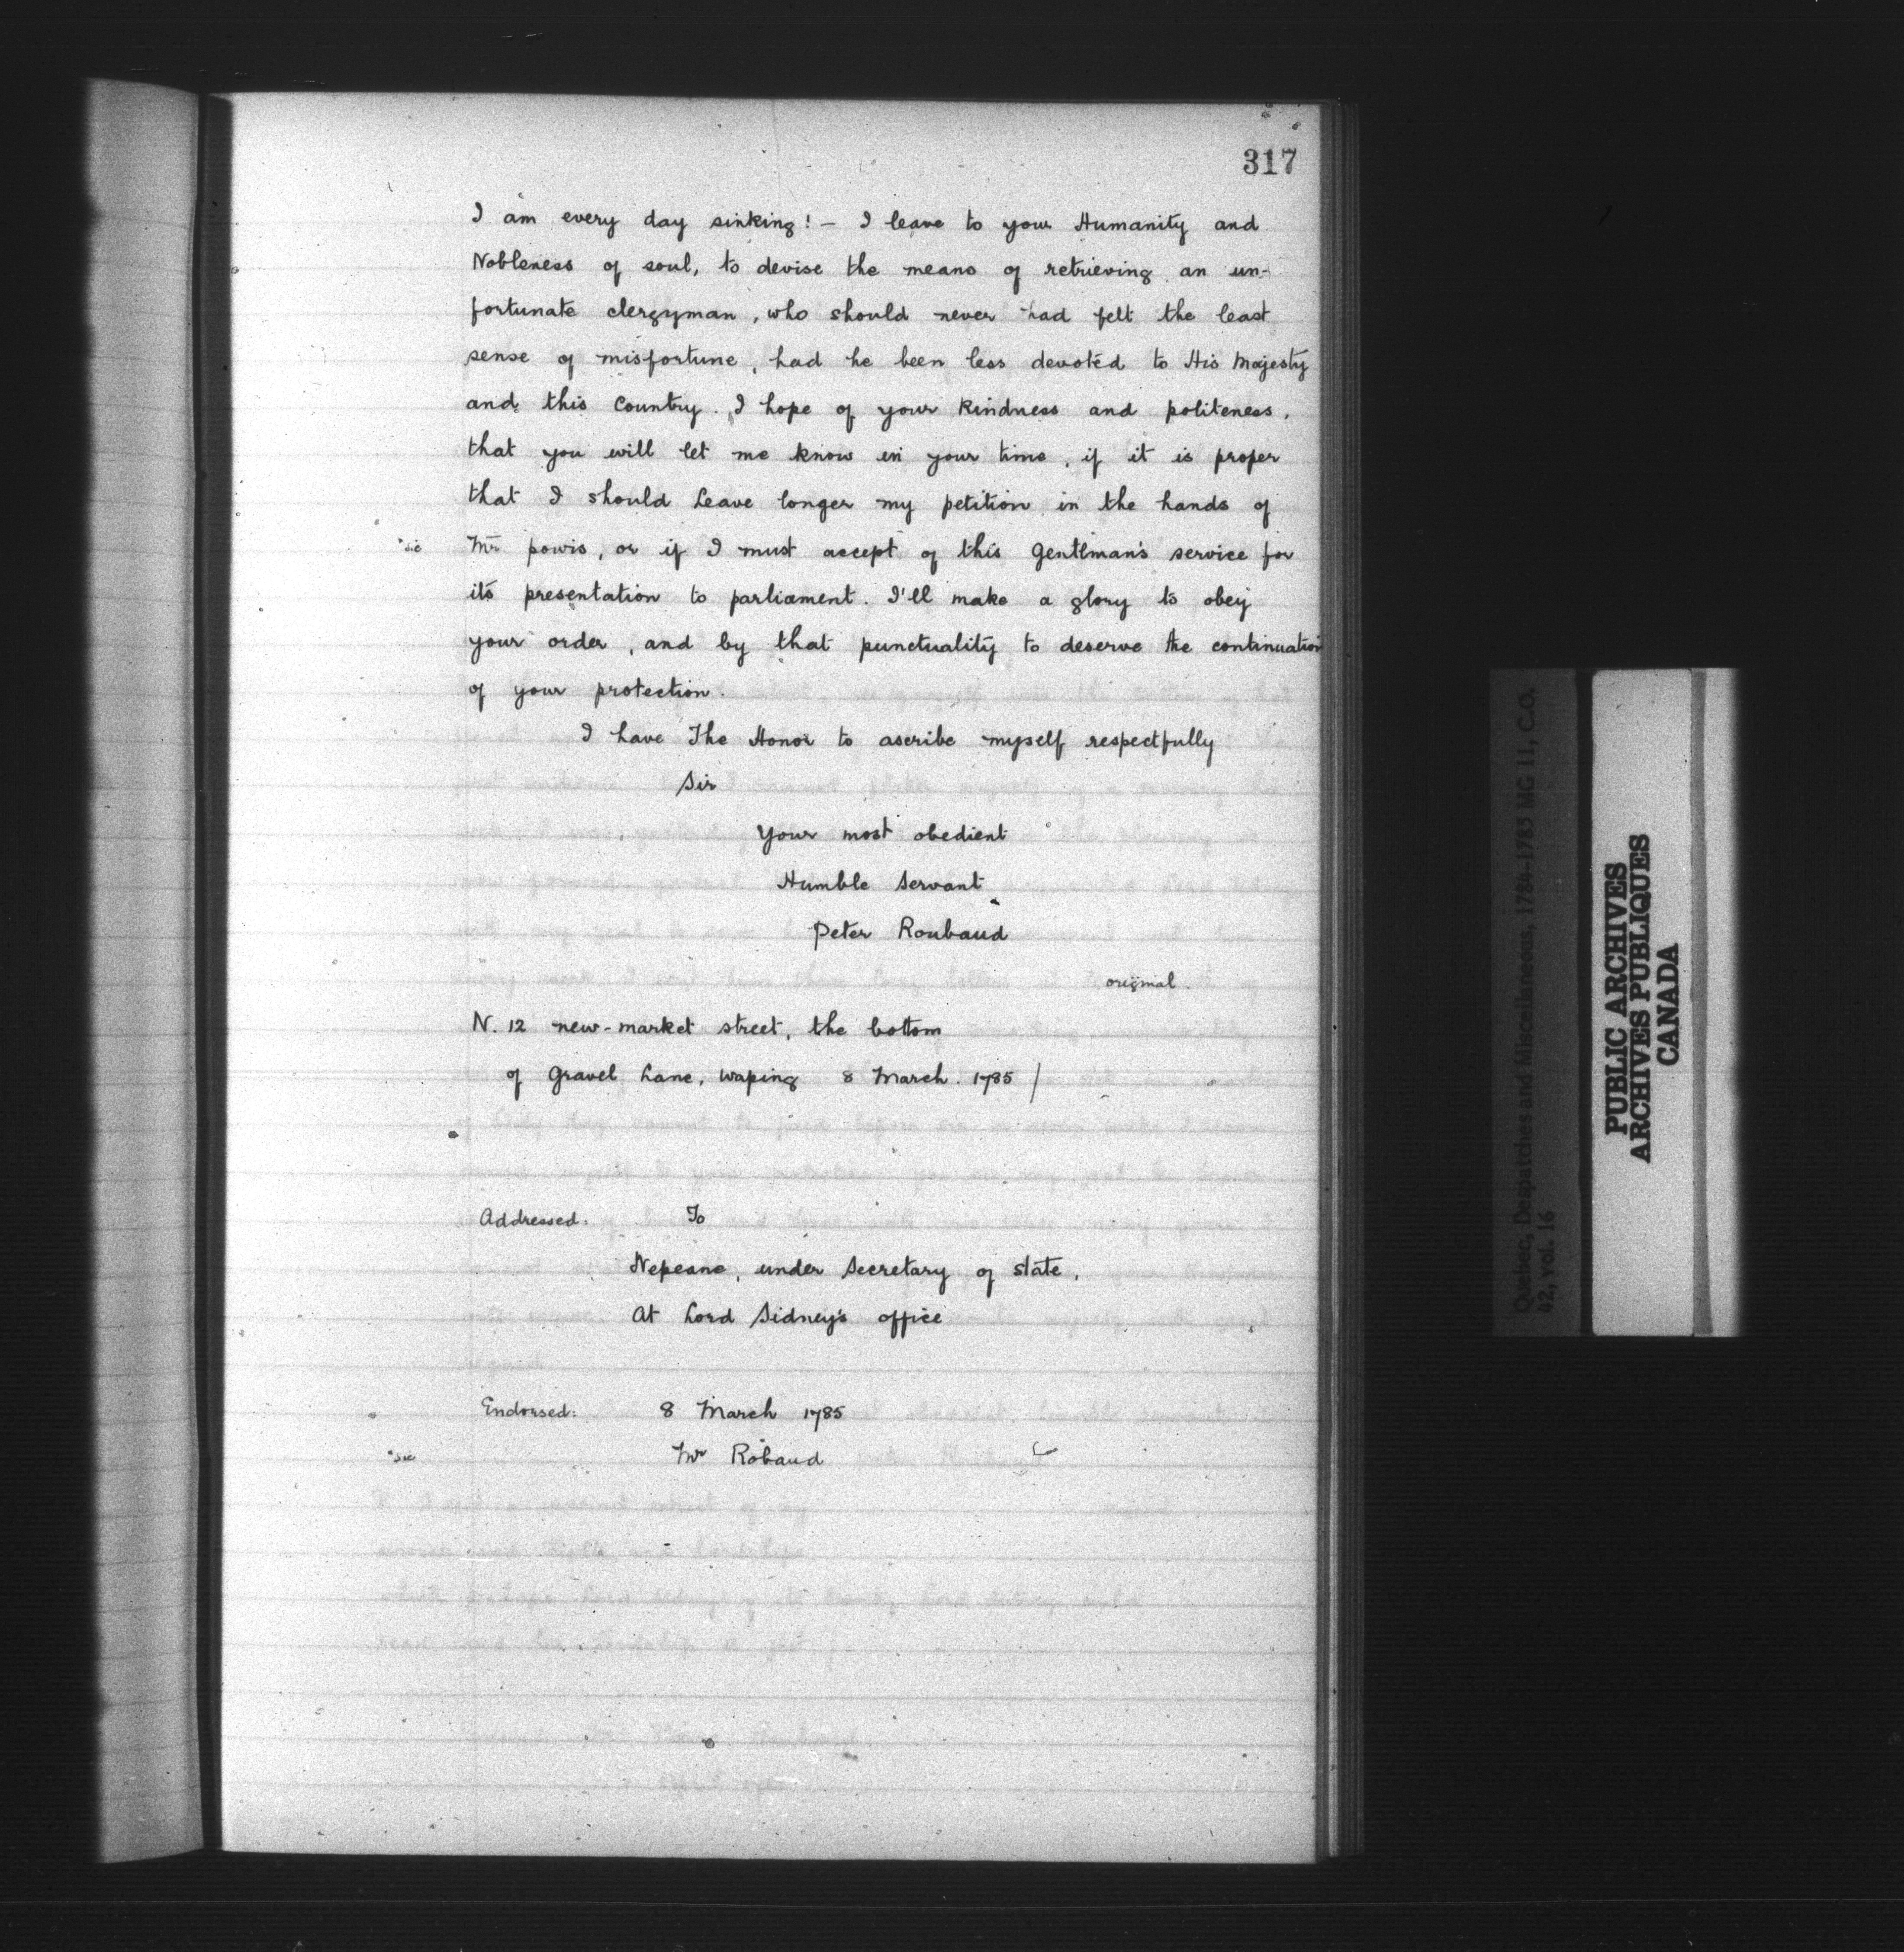 317
I am every day sinking! – I leave to your Humanity and
Nobleness of soul, to devise the means of retrieving an un-
fortunate clergyman, who should never had felt the least
sense of misfortune, had he been less devoted to His Majesty
and this Country. I hope of your kindness and politeness,
that you will let me know in your time, if it is proper
that I should leave longer my petition in the hands of
*sic Mr powis, or if I must accept of this gentlman's service for
its presentation to parliament. I'll make a glory to obey
your order, and by that punctuality to deserve the continuation
of your protection.
I have The Honor to ascribe myself respectfully
Sir
Your most obedient
Humble Servant
Peter Roubaud
original.
N. 12 new-market street, the bottom
of Gravel Lane, Waping 8 March. 1785/
Addressed: To
Nepeane, under Secretary of state,
At Lord Sidney's office
Endorsed: 8 March 1785
*sic Mr Robaud
Quebec, Despatches and Miscellaneous, 1784-1785 MG 11, C.O.
42, vol. 16
PUBLIC ARCHIVES
ARCHIVES PUBLIQUES
CANADA